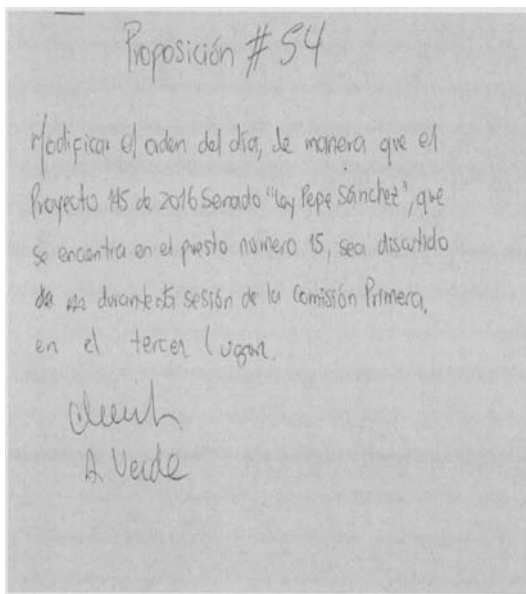 Proposición # 54
Modificar el orden del día, de manera que el
Proyecto 145 de 2016 Senado "Ley Pepe Sánchez", que
se encuentra en el puesto número 15, sea discutido
durante esta sesión de la Comisión Primera,
en el tercer lugar.
A Verde